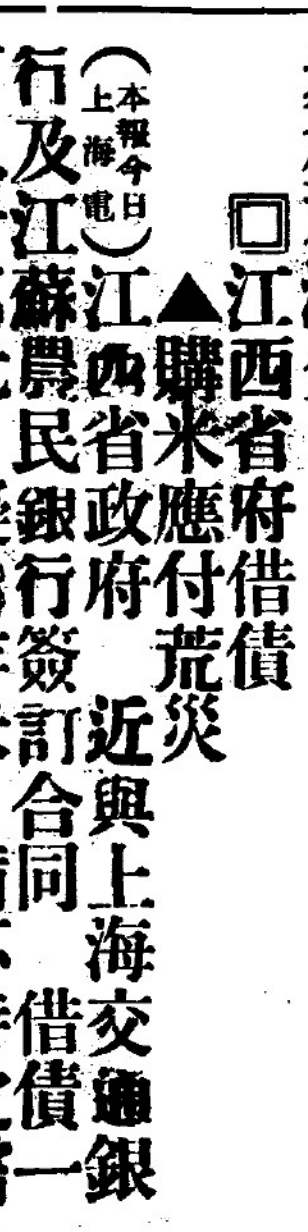 □江西省府借債
▲購米應付荒災
（本報今日上海電）江西省政府　近與上海交通銀
行及江蘇農民銀行簽訂合同　借債一